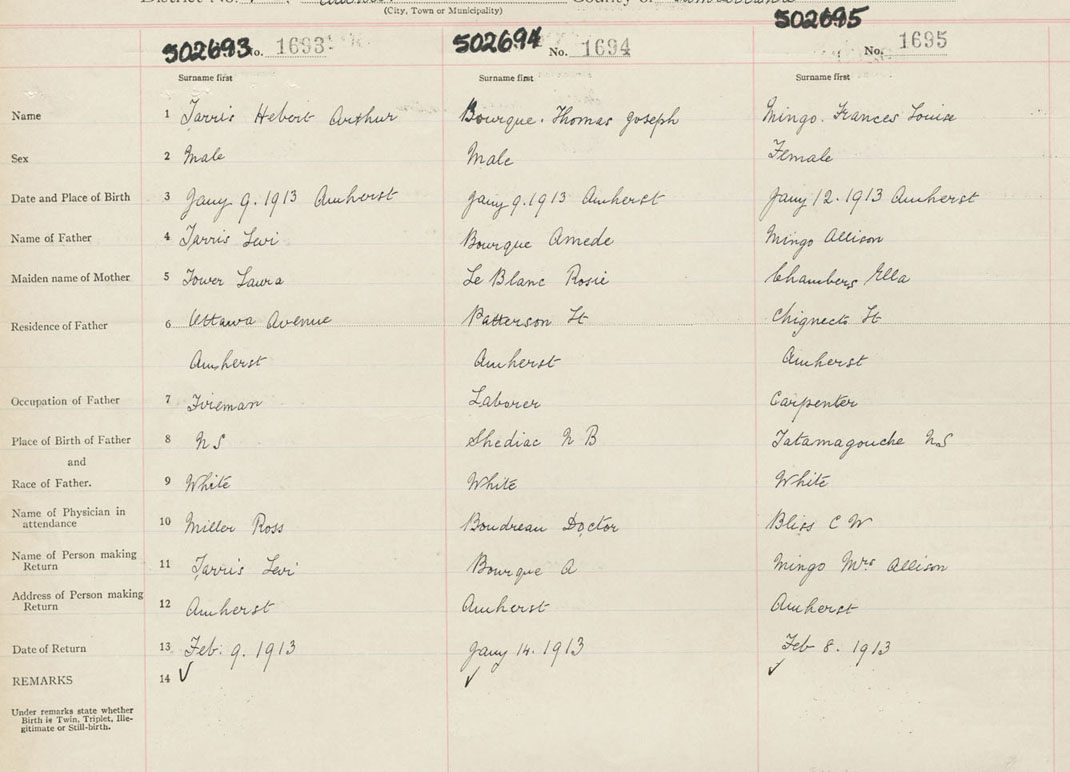 District No.
County of
(City, Town or Municipality)
502693 No. 1693 502694 No. 1694 502695 No. 1695
Surname first Surname first Surname first
Name 1 Tarris Hebert Arthur Bourque. Thomas Joseph Mingo. Frances Louise
Sex 2 Male Male Female
Date and Place of Birth 3 Jany 9. 1913 Amherst Jany 9. 1913 Amherst Jany 12. 1913 Amherst
Name of Father 4 Tarris Levi Bourque Amede Mingo Allison
Maiden name of Mother 5 Tower Laura Le Blanc Rosie Chambers Ella
Residence of Father 6 Ottawa Avenue Patterson St Chignecto St
Amherst Amherst Amherst
Occupation of Father 7 Fireman Laborer Carpenter
Place of Birth of Father 8 N S Shediac N B Tatamagouche N S
and
Race of Father. 9 White White White
Name of Physician in
attendance 10 Miller Ross Boudreau Doctor Bliss C W
Name of Person making
Return 11 Tarris Levi Bourque A Mingo Mrs Allison
Address of Person making
Return 12 Amherst Amherst Amherst
Date of Return 13 Feb. 9. 1913 Jany 14. 1913 Feb 8. 1913
REMARKS 14 ✓ ✓ ✓
Under remarks state whether
Birth is Twin, Triplet, Ille-
gitimate or Still-birth.